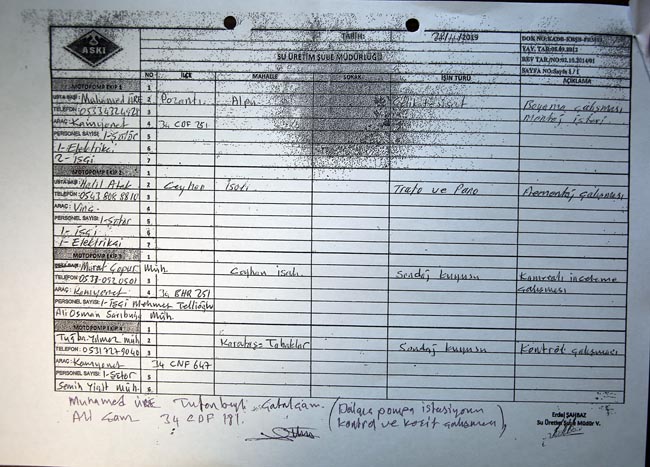 ASKİ
TARİH: 28/11/2019
SU ÜRETİM ŞUBE MÜDÜRLÜĞÜ
YAY. TAR:05.09.2012
REV TAR/NO:02.10.2014/01
SAYFA NO:Sayfa 1 / 1
NO İLÇE MAHALLE SOKAK İŞİN TÜRÜ AÇIKLAMA
MOTOPOMP EKİP 1 1
USTA BAŞI: Muhamed ÜRE 2 Pozantı Alpu Boyama çalışması
TELEFON: 3 montaj işleri
ARAÇ: Kamyonet 4 34 CDF 251
PERSONEL SAYISI: 1-Şöför 5
1-Elektrikçi 6
2-İşçi 7
MOTOPOMP EKİP 2 1
USTA BAŞI: Halil Atak 2 Ceyhan İsalı Trafo ve Pano Demontaj çalışması
TELEFON: 0543 808 8810 3
ARAÇ: Vinç 4
PERSONEL SAYISI: 1-Şöför 5
1-İşçi 6
1-Elektrikçi 7
MOTOPOMP EKİP 3 1
Murat Çopur Müh. 2 Ceyhan İsalı Sondaj kuyusu Kameralı inceleme
TELEFON: 0533-052 0501 3 çalışması
ARAÇ: Kamyonet 4 34 BHR 251
PERSONEL SAYISI: 1-İşçi Mehmet Tellioğlu
Ali Osman Sarıbuğa Müh
MOTOPOMP EKİP 4 1
Tuğba Yılmaz müh 2 Karataş Tabaklar Sondaj kuyusu Kontrol çalışması
TELEFON: 3
ARAÇ: Kamyonet 4 34 CNF 647
PERSONEL SAYISI: 1-Şöför 5
Semih Yiğit Müh. 6
Muhamed ÜRE Tufanbeyli Çatalçam. (Dalgıç pompa istasyonu
Ali Çam 34 CDF 181. kontrol ve keşif çalışması)
Erdal ŞAHBAZ
Su Üretim Şube Müdür V.